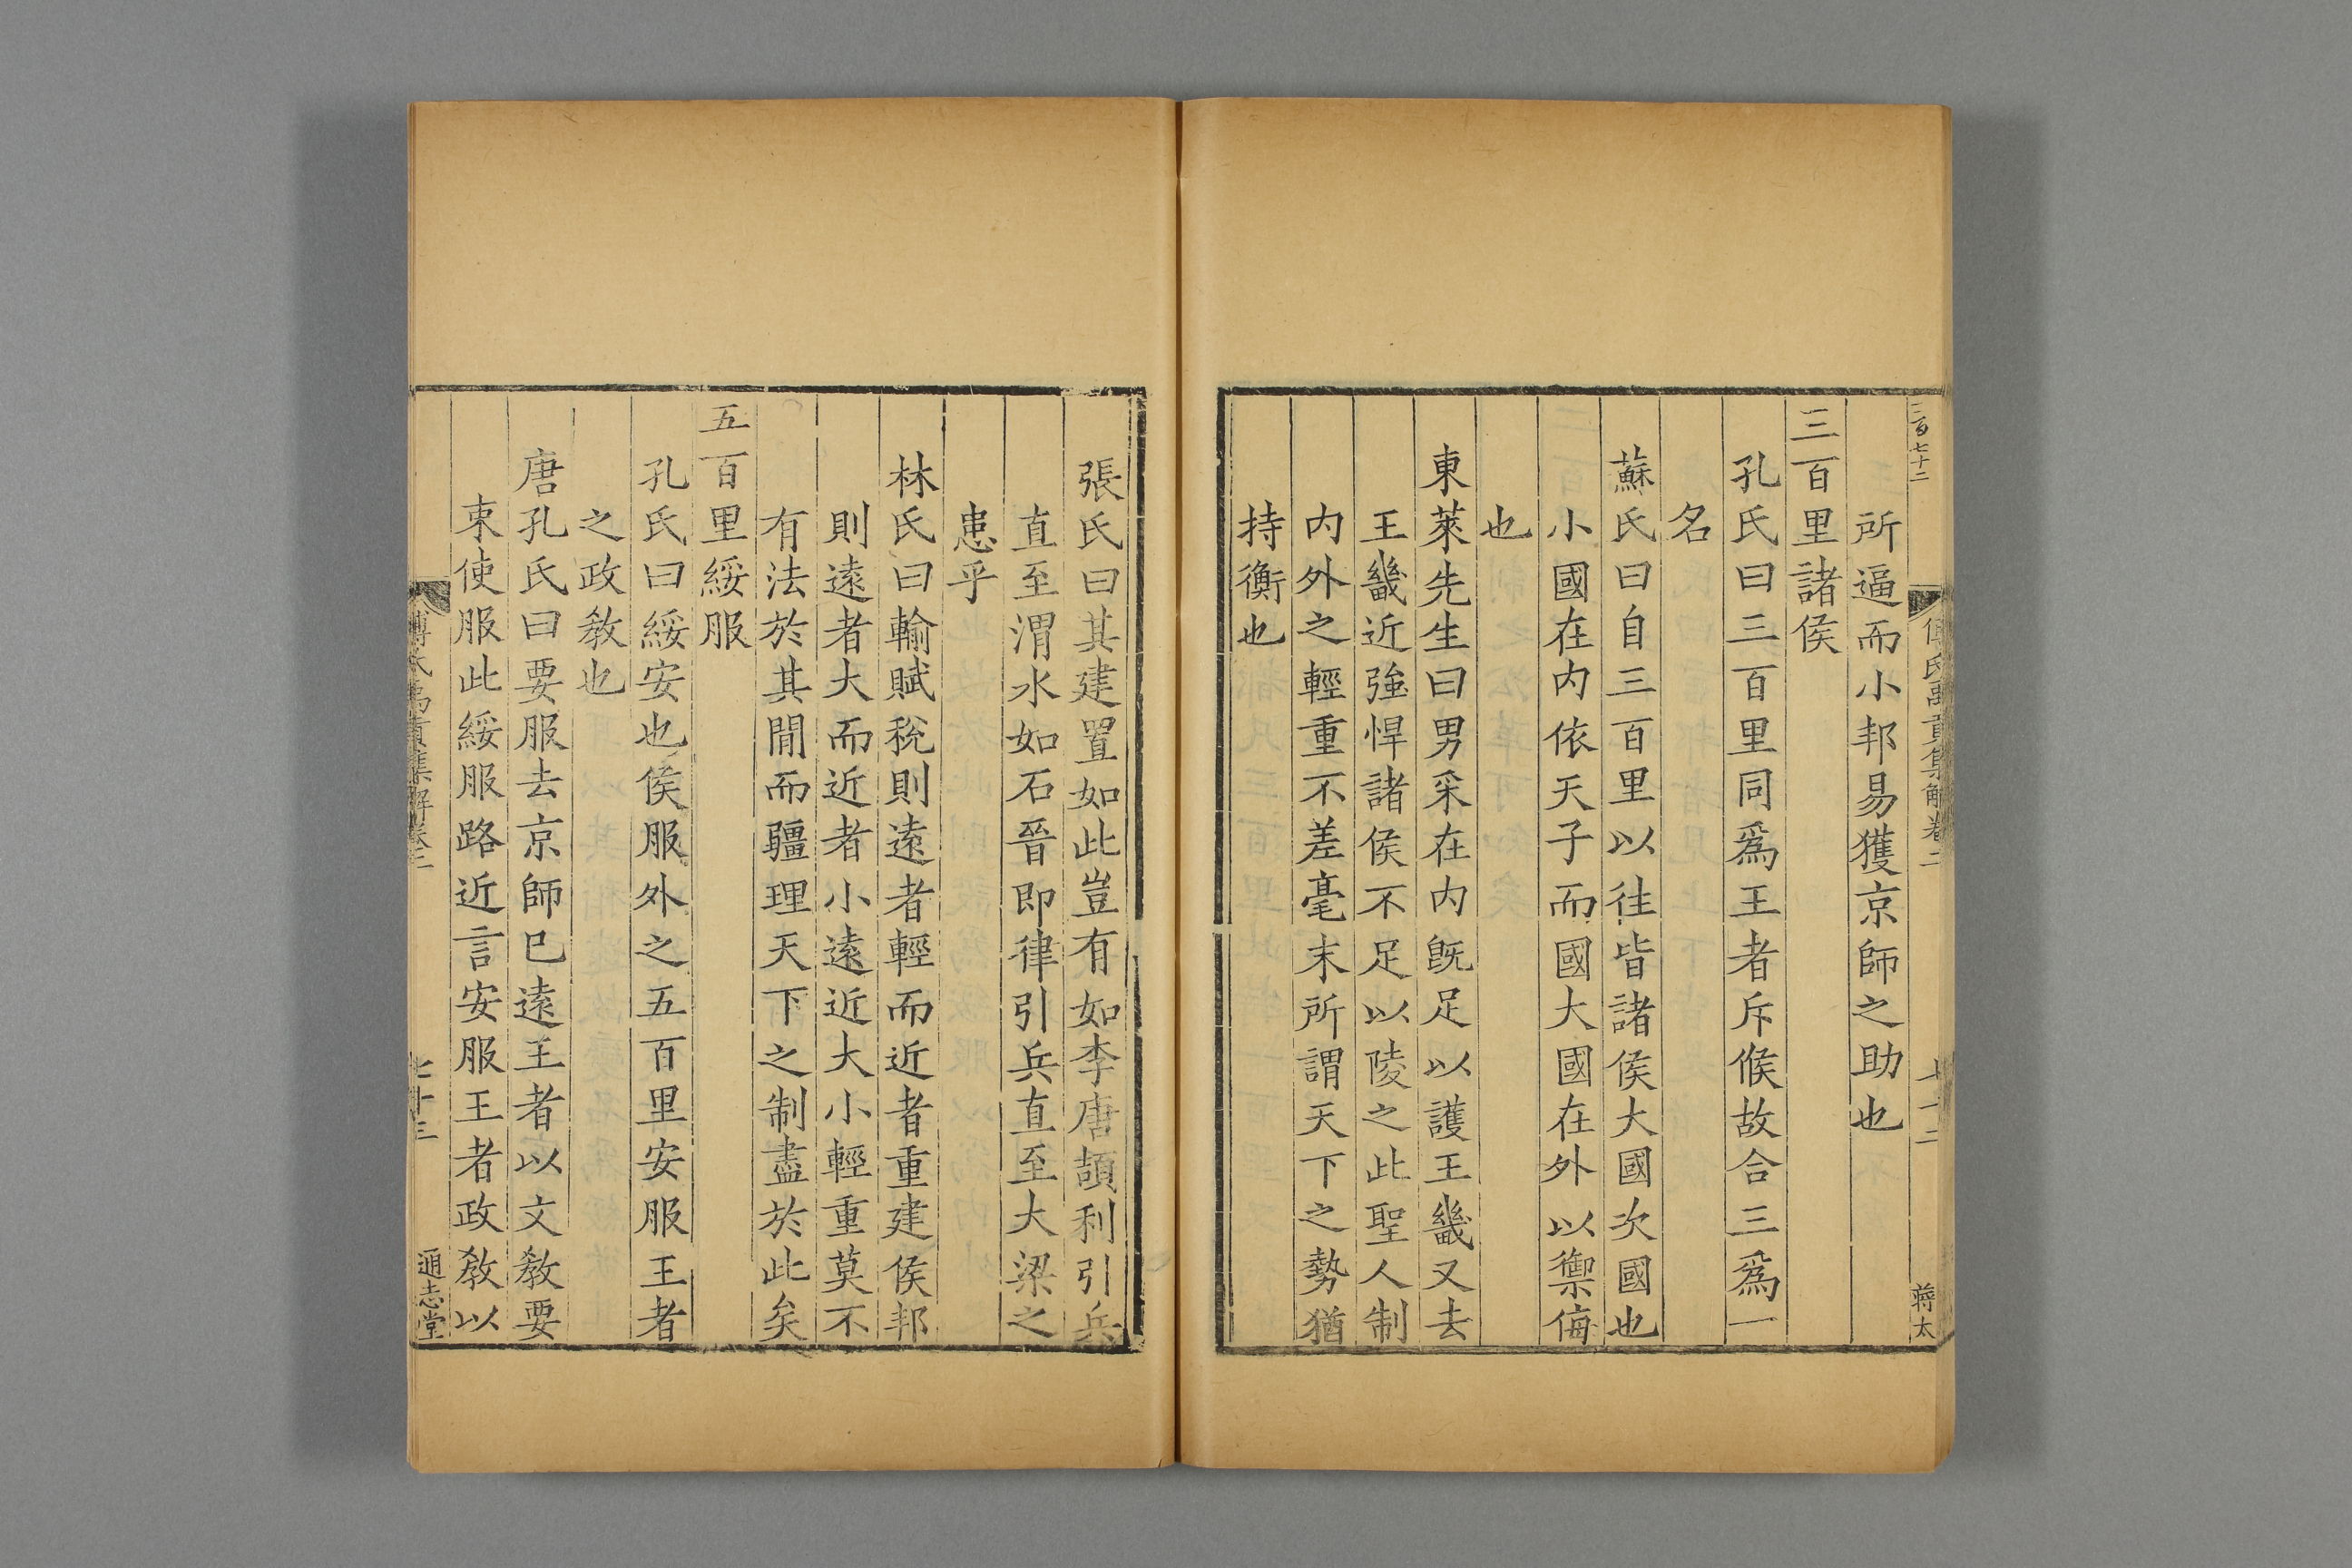 三百七十二
傅氏禹貢集解卷二
七十二
蔣太
所逼而小邦易獲京師之助也
三百里諸侯
孔氏曰三百里同爲王者斥候故合三爲一
名
蘇氏曰自三百里以往皆諸侯大國次國也
小國在内依天子而國大國在外以禦侮
也
東萊先生曰男采在内旣足以護王畿又去
王畿近強悍諸侯不足以陵之此聖人制
内外之輕重不差毫末所謂天下之勢猶
持衡也
張氏曰其建置如此豈有如李唐頡利引兵
直至渭水如石晉即律引兵直至大梁之
患乎
林氏曰輸賦稅則遠者輕而近者重建侯邦
則遠者大而近者小遠近大小輕重莫不
有法於其閒而疆理天下之制盡於此矣
五百里綏服
孔氏曰綏安也侯服外之五百里安服王者
之政敎也
唐孔氏曰要服去京師已遠王者以文敎要
束使服此綏服路近言安服王者政敎以
傅氏禹貢集解卷二
七十三
通志堂